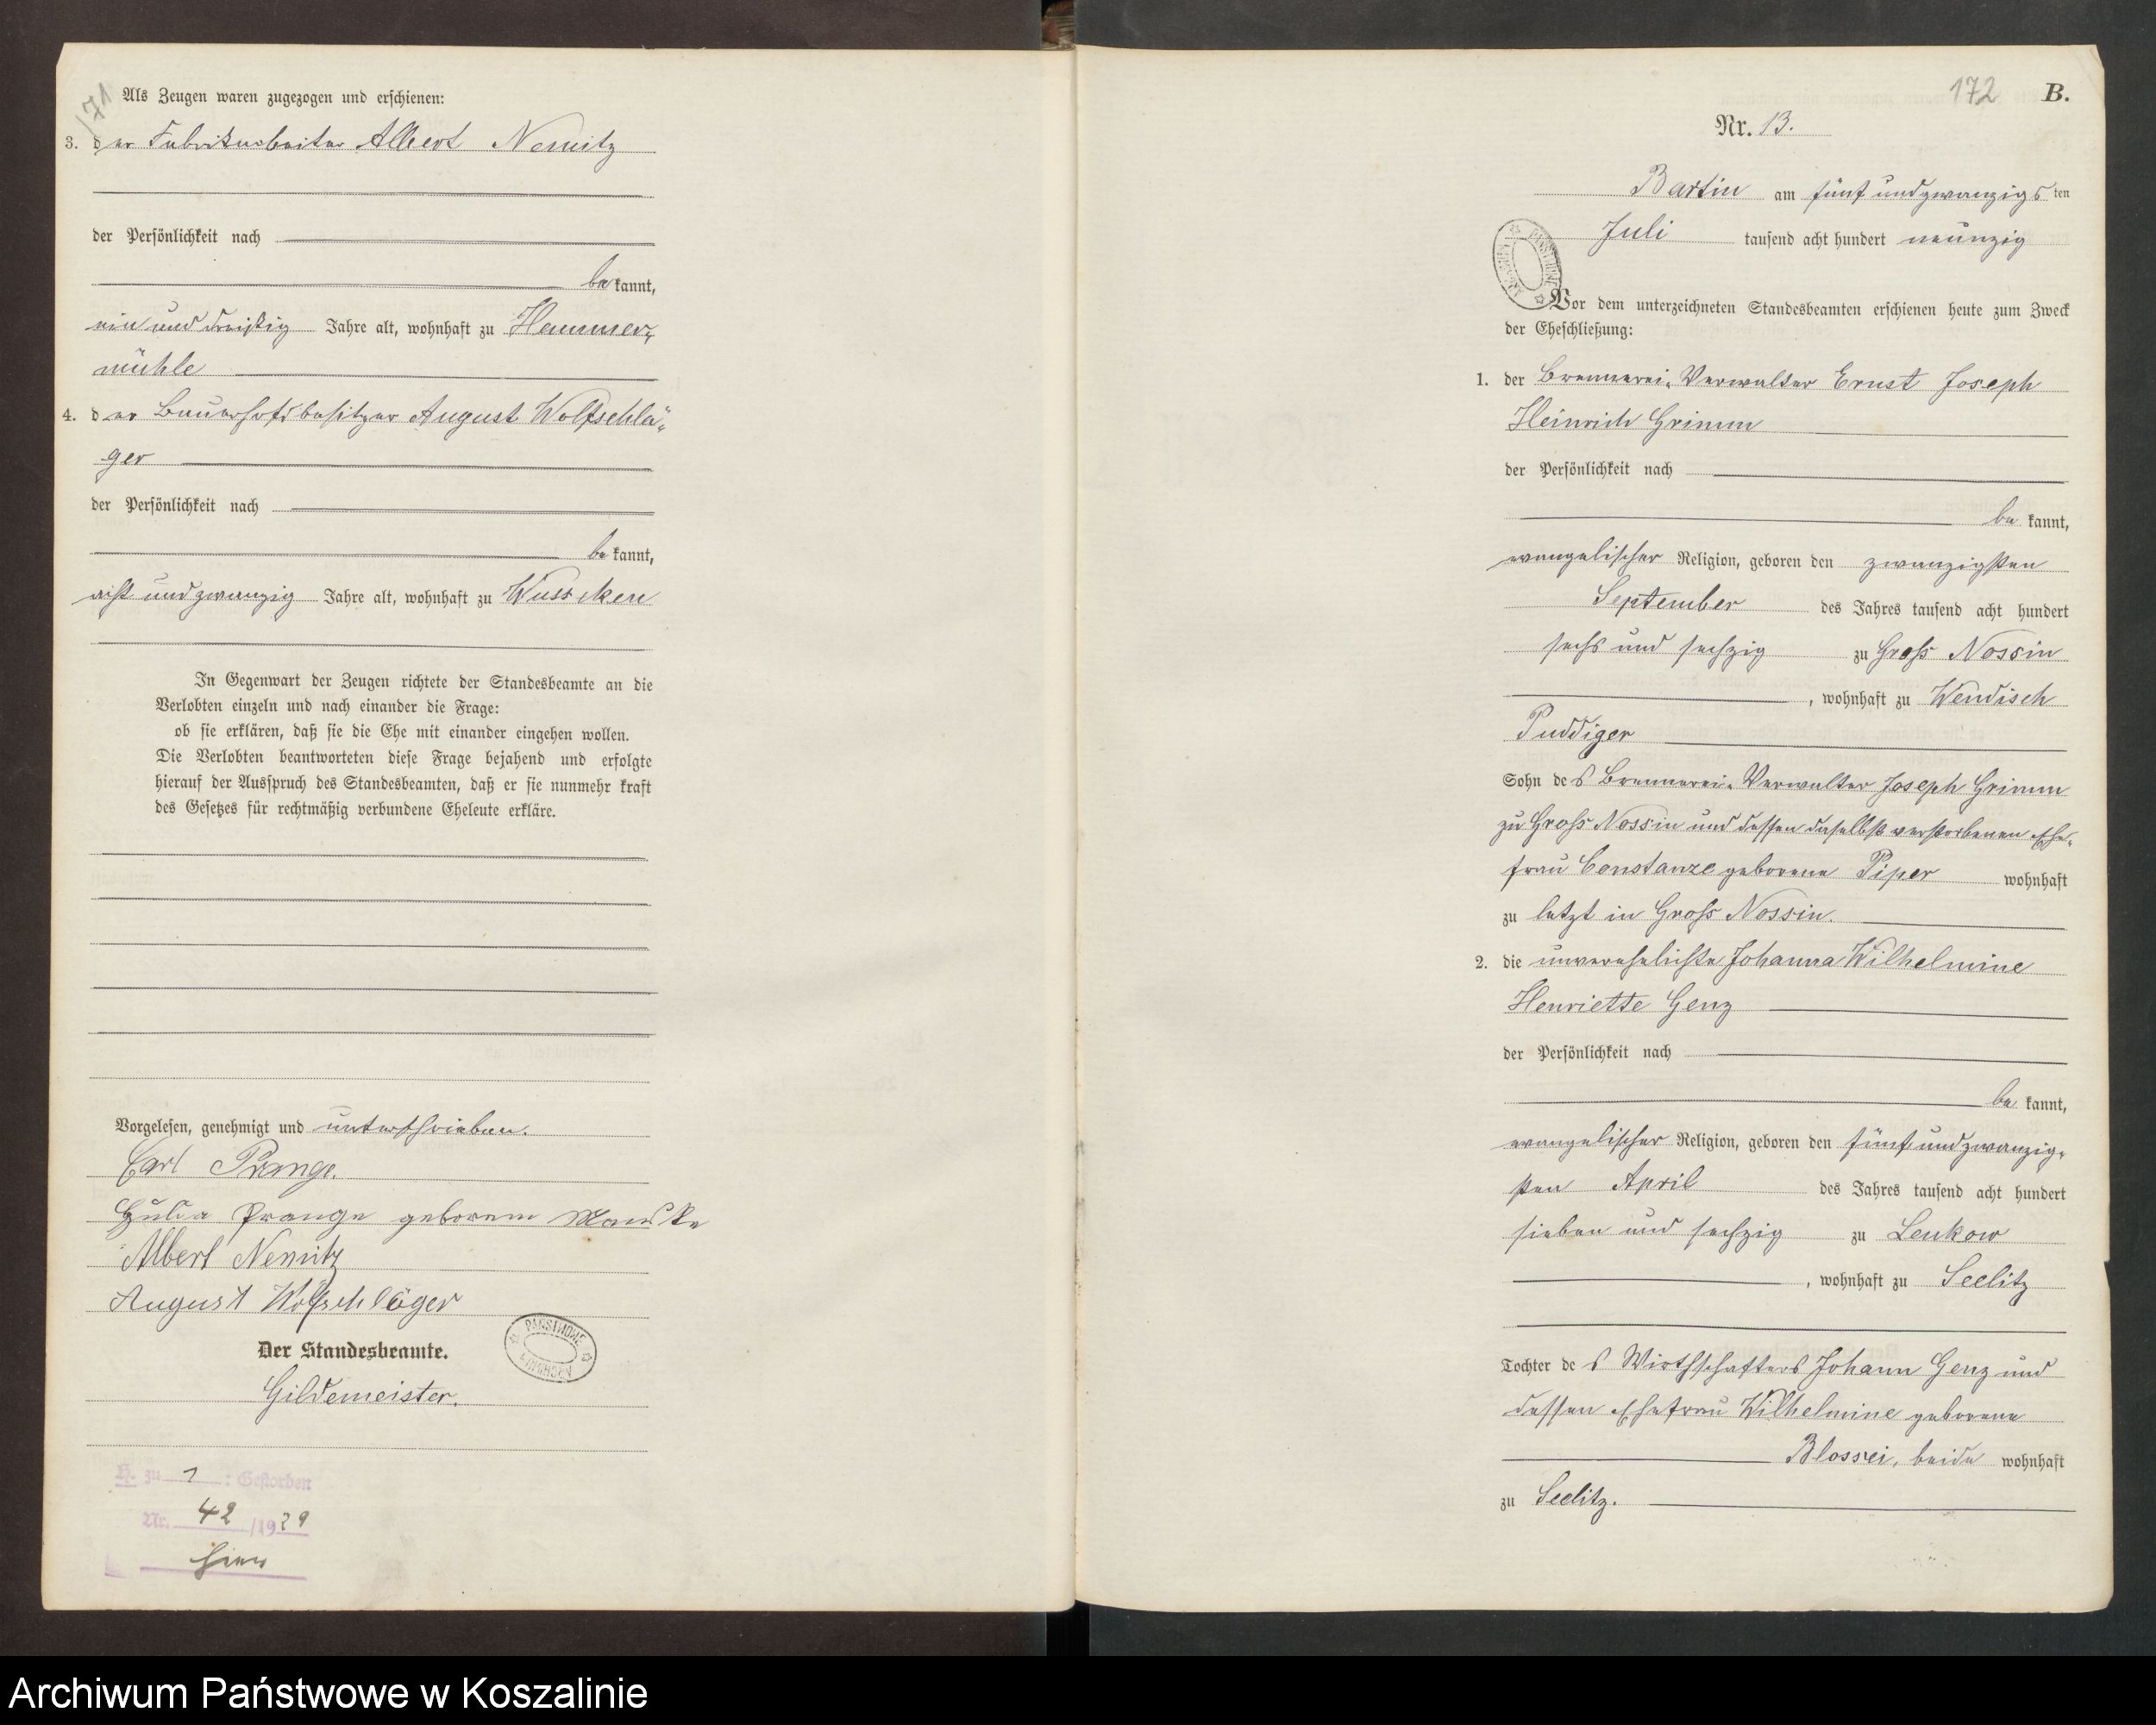 171
Als Zeugen waren zugezogen und erschienen:
3. der Fabrikarbeiter Albert Nemitz
der Persönlichkeit nach
bekannt,
ein und dreißig Jahre alt, wohnhaft zu Hammer-
mühle
4. der Bauerhofsbesitzer August Wolfschlä-
ger
der Persönlichkeit nach
bekannt,
acht und zwanzig Jahre alt, wohnhaft zu Wussoken
In Gegenwart der Zeugen richtete der Standesbeamte an die
Verlobten einzeln und nach einander die Frage:
ob sie erklären, daß sie die Ehe mit einander eingehen wollen.
Die Verlobten beantworteten diese Frage bejahend und erfolgte
hierauf der Ausspruch des Standesbeamten, daß er sie nunmehr kraft
des Gesetzes für rechtmäßig verbundene Eheleute erkläre.
Vorgelesen, genehmigt und unterschrieben.
Carl Prange.
Hulda Prange geborene Manske
Albert Nemitz
August Wolfschläger
PAŃSTWOWE ARCHIWUM
Der Standesbeamte.
Gildemeister.
H. zu 1: Gestorben
Nr. 42 /1929
hier
172 B.
Nr. 13.
Bartin am fünf und zwanzigsten
Juli tausend acht hundert neunzig
Vor dem unterzeichneten Standesbeamten erschienen heute zum Zweck
der Eheschließung:
1. der Brennerei-Verwalter Ernst Joseph
Heinrich Grimm
der Persönlichkeit nach
bekannt,
evangelischer Religion, geboren den zwanzigsten
September des Jahres tausend acht hundert
sechs und sechzig zu Groß Nossin
, wohnhaft zu Wendisch
Puddiger
Sohn des Brennerei-Verwalter Joseph Grimm
zu Groß Nossin und dessen daselbst verstorbenen Ehe-
frau Constanze geborene Piper wohnhaft
zu letzt in Groß Nossin.
2. die unverehelichte Johanna Wilhelmine
Henriette Genz
der Persönlichkeit nach
bekannt,
evangelischer Religion, geboren den fünf und zwanzig-
sten April des Jahres tausend acht hundert
sieben und sechzig zu Lenkow
, wohnhaft zu Seelitz
Tochter des Wirthschafters Johann Genz und
dessen Ehefrau Wilhelmine geborene
Blossei, beide wohnhaft
zu Seelitz.
Archiwum Państwowe w Koszalinie